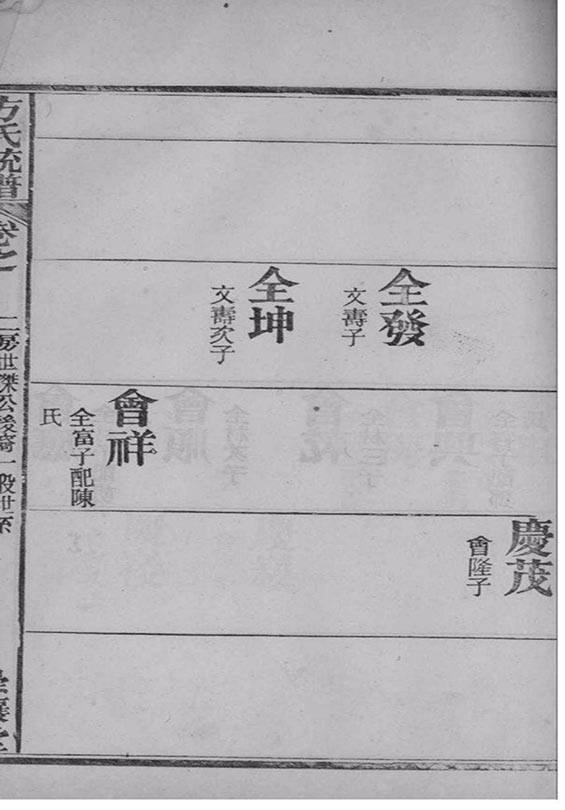 全發
文壽子
全坤
文壽次子
會祥
全富子配陳
氏
慶茂
會隆子
方氏統譜
卷之一
二房世傑公段裔一股世系